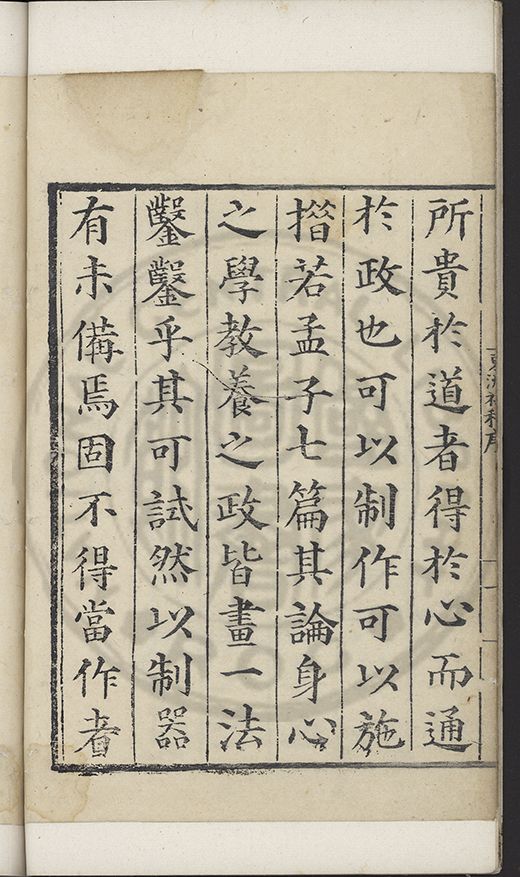 所貴於道者得於心而通
於政也可以制作可以施
措若孟子七篇其論身心
之學教養之政皆畫一法
鑿鑿乎其可試然以制器
有未備焉固不得當作者